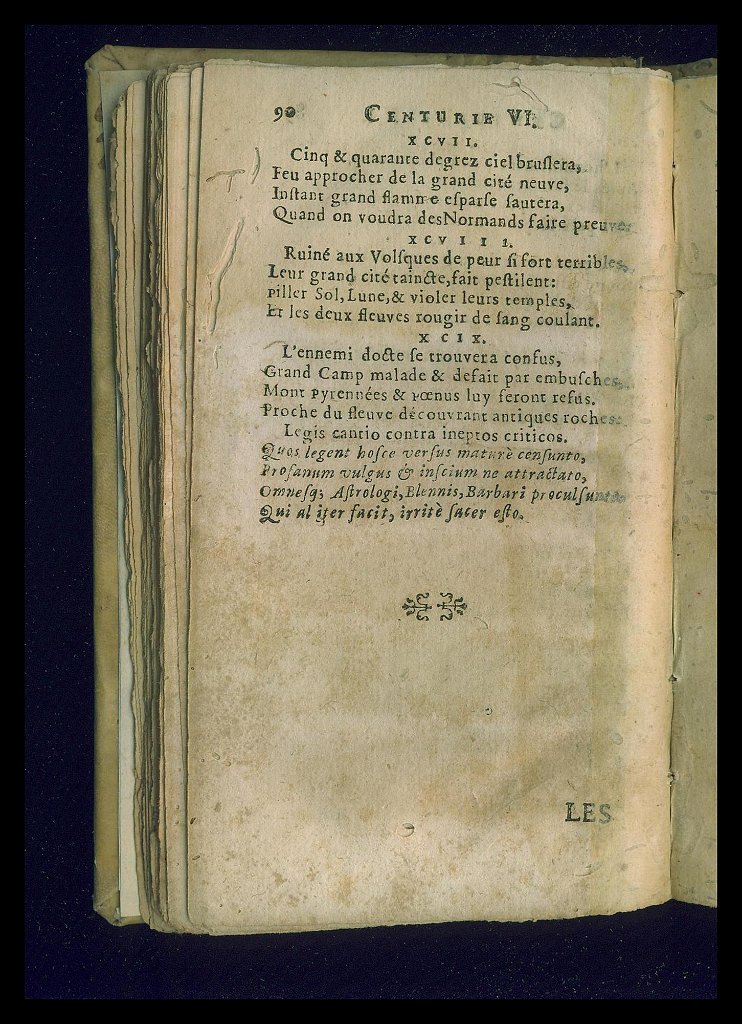 90 CENTURIE VI.
XCVII.
Cinq & quarante degrez ciel bruſlera,
Feu approcher de la grand cité neuve,
Inſtant grand flamme eſparſe ſautera,
Quand on voudra des Normands faire preuve.
XCVIII.
Ruiné aux Volſques de peur ſi fort terribles,
Leur grand cité taincte, fait peſtilent:
piller Sol, Lune, & violer leurs temples,
Et les deux fleuves rougir de ſang coulant.
XCIX.
L'ennemi docte ſe trouvera confus,
Grand Camp malade & defait par embuſches,
Mont Pyrennées & Pœnus luy ſeront refus.
Proche du fleuve découvrant antiques roches.
Legis cantio contra ineptos criticos.
Quos legent hoſce verſus maturè cenſunto,
Profanum vulgus & inſcium ne attractato,
Omneſq; Aſtrologi, Blennis, Barbari procul ſunto
Qui al iter facit, irritè ſacer eſto.
LES